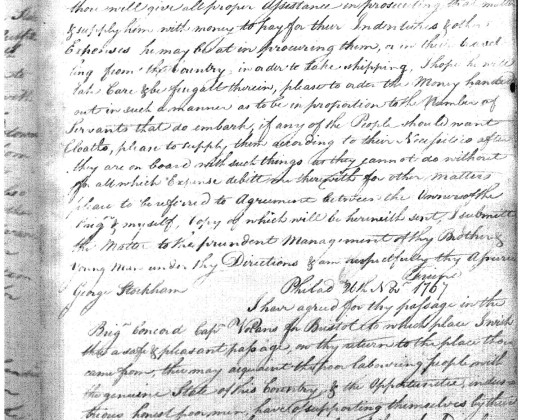 thou will give all proper Assistance in prosecuting that matter
& supply him with money to pay for their Indentures & other
Expenses he may be at in procuring them, or in their travel
ling from the Country, in order to take shipping, I hope he will
take Care & be frugall therein, please to order the Money handed
out in such a manner as to be in proportion to the Number of
Servants that do embark, if any of the People should want
Cloaths, please to supply them according to their Necessities after
they are on board with such things as they cannot do without
for all which Expense debitt me therewith for other matters
please to be referred to Agreement between the Owners of the
Brigt & myself, Copy of which will be herewith sent, I submitt
the Matter to the prundent Management of thy Brother &
Young Man under thy Directions & am respectfully thy Assured
George Stockham
Philad 26th 1767
I have agreed for thy passage in the
Brigt Concord Capt Volans for Bristol to which place I wish
thee a safe & pleasant passage, on thy return to the place thou
came from, thee may acquaint the poor labouring people with
the genuine State of this Country, & the Oppertunities, indus
trious honest poor men have of supporting themselves by their